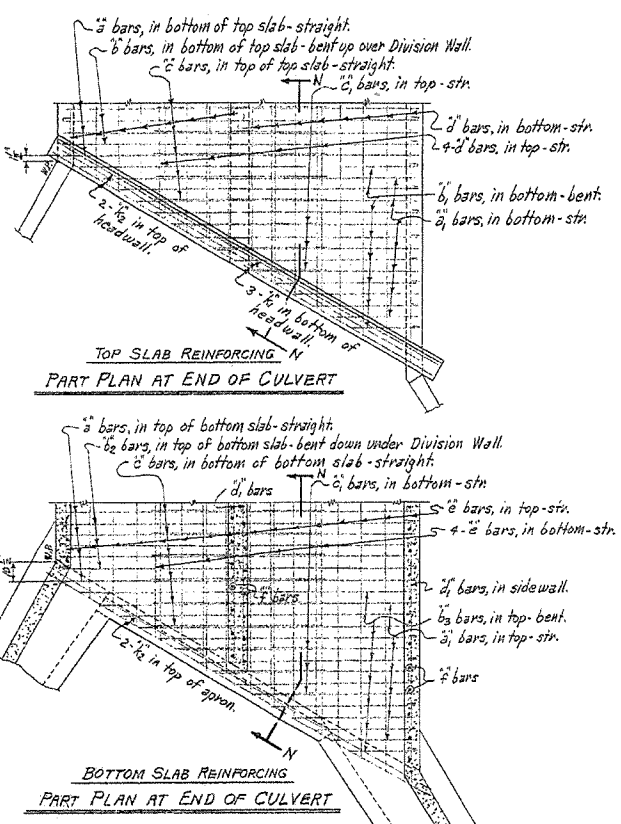 "a" bars, in bottom of top slab-straight.
"b" bars, in bottom of top slab-bent up over Division Wall.
"c" bars, in top of top slab-straight.
N
"c₁" bars, in top-str.
"d" bars, in bottom-str.
4-"d" bars, in top-str.
"b₁" bars, in bottom-bent.
"a₁" bars, in bottom-str.
W.P.
2-"k₂" in top of
headwall.
3-"k₁" in bottom of
headwall.
N
TOP SLAB REINFORCING
PART PLAN AT END OF CULVERT
"a" bars, in top of bottom slab-straight.
"b₂" bars, in top of bottom slab-bent down under Division Wall.
"c" bars, in bottom of bottom slab-straight.
N
"d₁" bars
"c₁" bars, in bottom-str.
"e" bars, in top-str.
4-"e" bars, in bottom-str.
W.P.
"d₁" bars, in sidewall.
"f" bars
"b₃" bars, in top-bent.
"a₁" bars, in top-str.
"f" bars
2-"k₂" in top of apron.
N
BOTTOM SLAB REINFORCING
PART PLAN AT END OF CULVERT